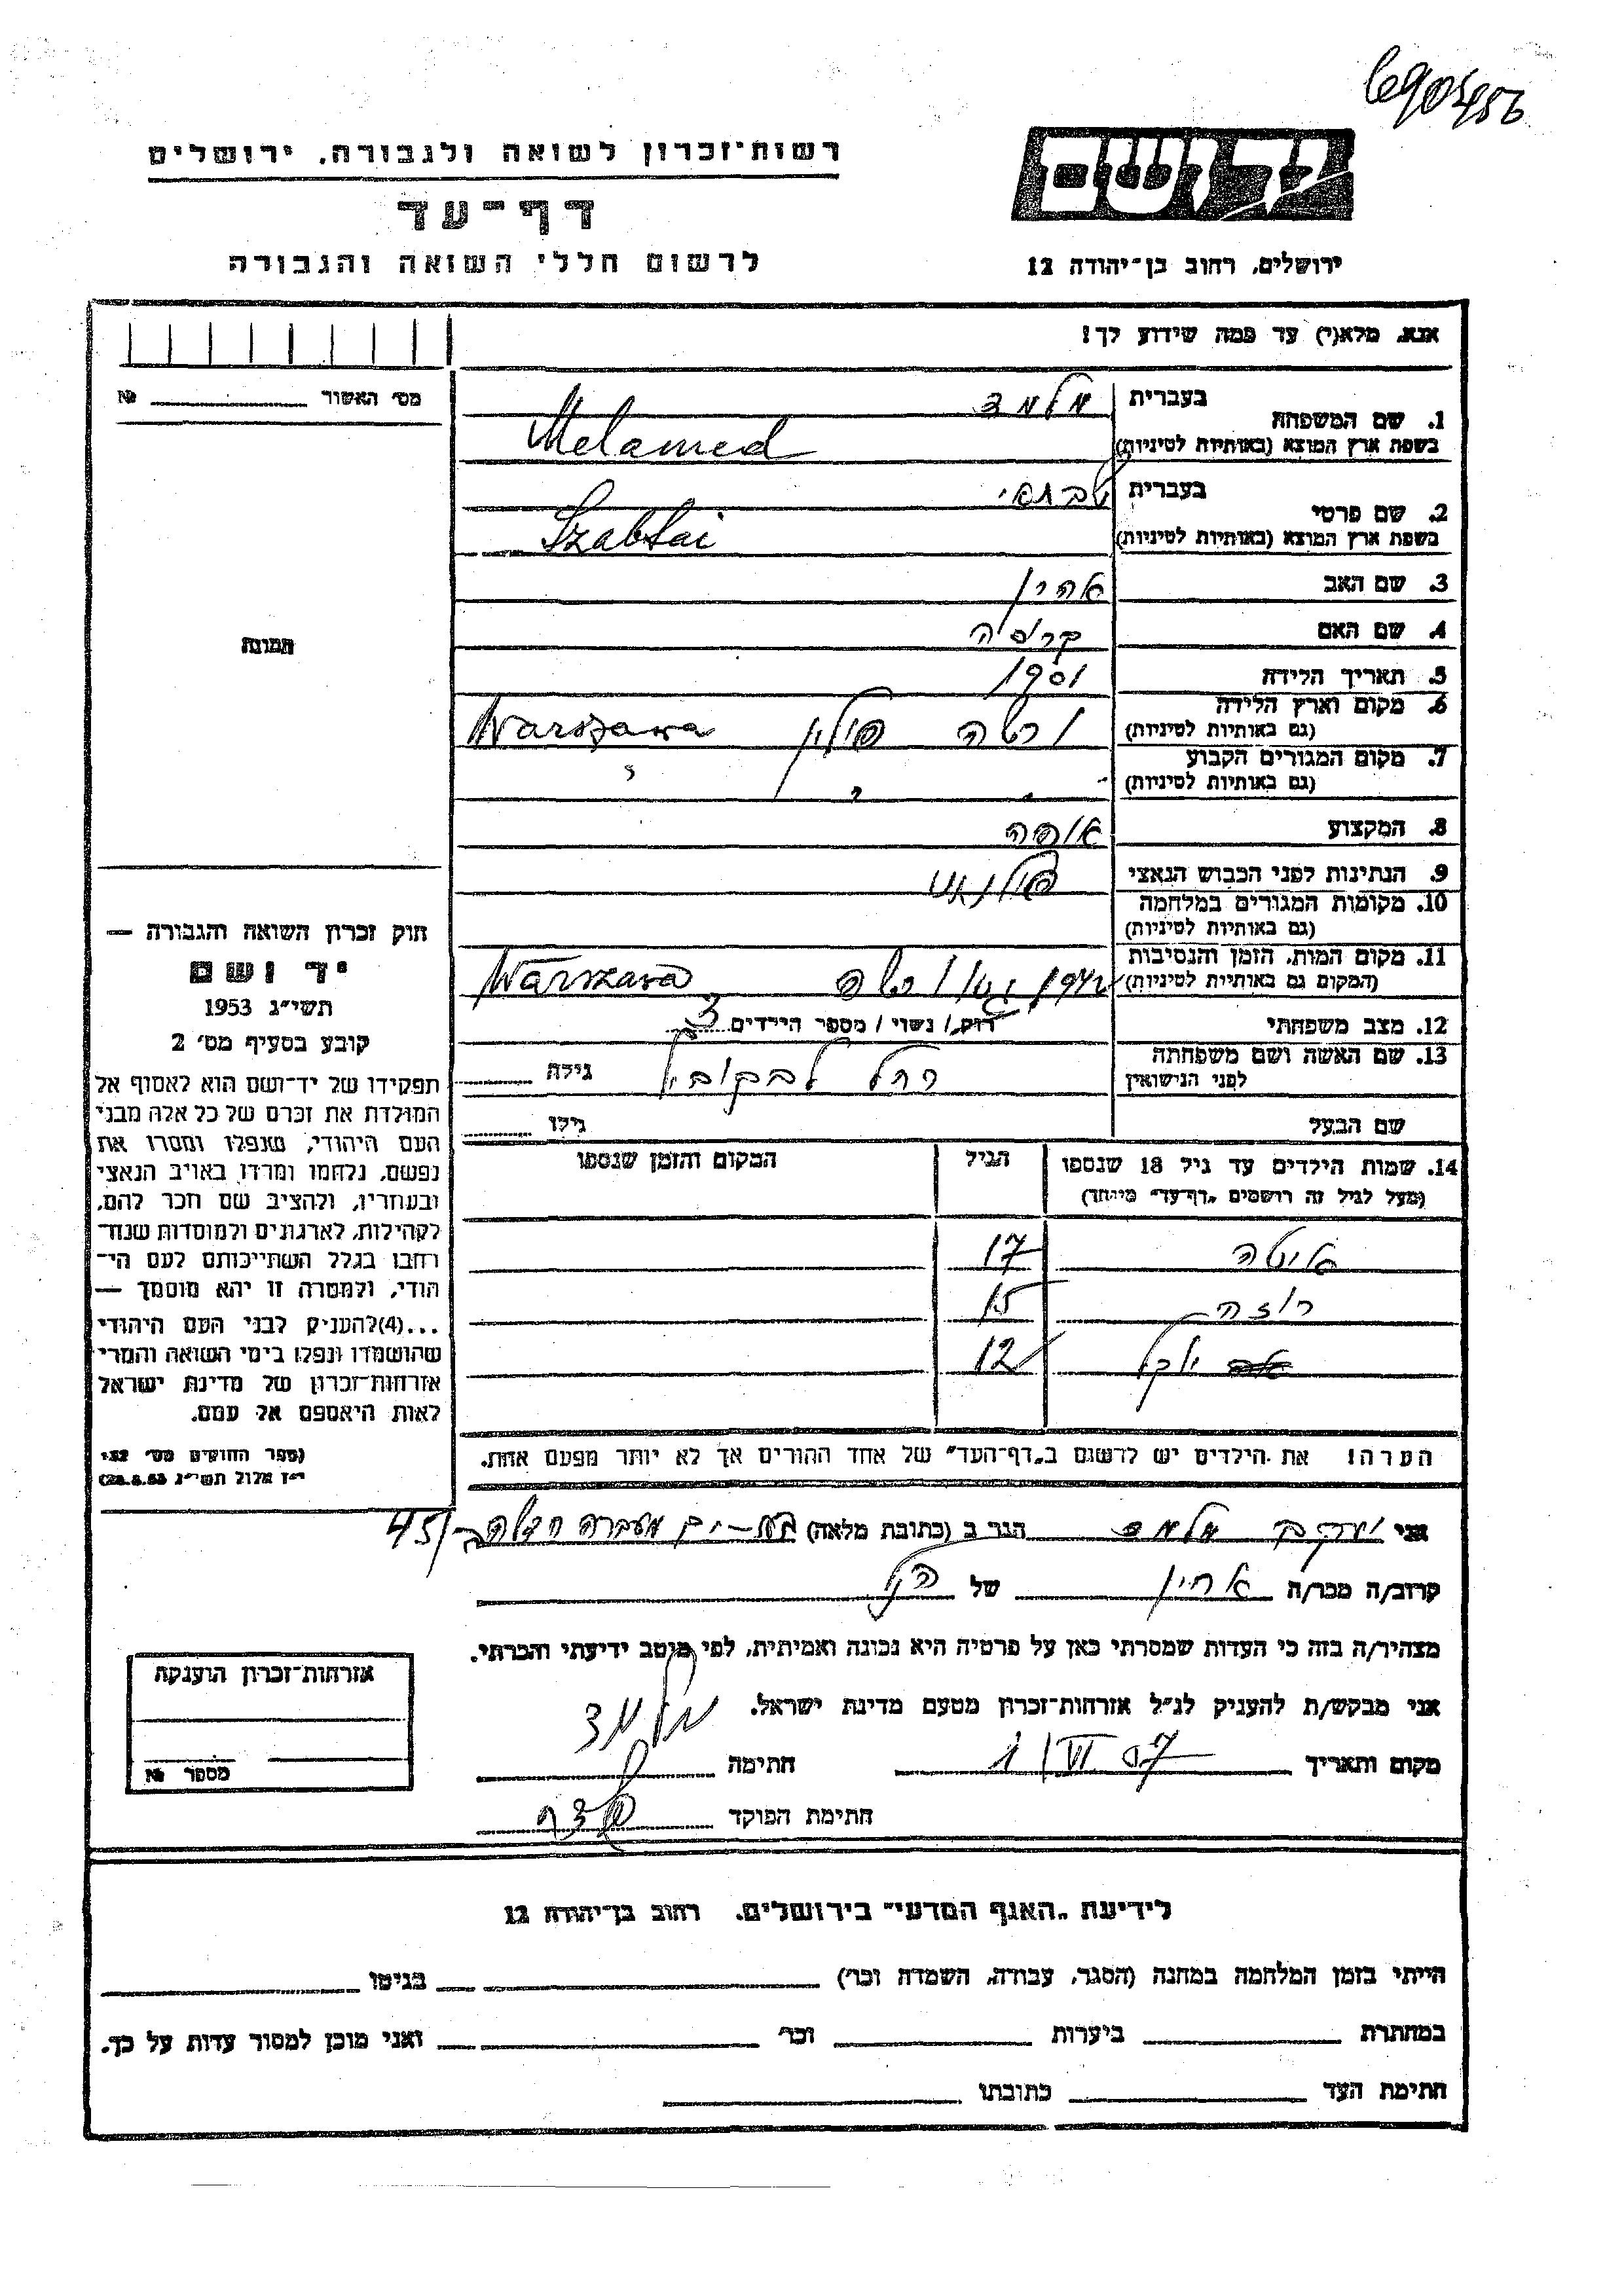 רשות־זכרון לשואה ולגבורה, ירושלים
דף־עד
לרשום חללי השואה והגבורה
יד ושם
ירושלים, רחוב בן־יהודה 12
אנא, מלא(י) עד כמה שידוע לך!
מס׳ האשור №
תמונה
1. שם המשפחה
בעברית מלמד
בשפת ארץ המוצא (באותיות לטיניות) Melamed
2. שם פרטי
בעברית שבתאי
בשפת ארץ המוצא (באותיות לטיניות) Szabtai
3. שם האב אהרן
4. שם האם
5. תאריך הלידה 1901
6. מקום וארץ הלידה ורשה פולין Warszawa
(גם באותיות לטיניות)
7. מקום המגורים הקבוע " " "
(גם באותיות לטיניות)
8. המקצוע אופה
9. הנתינות לפני הכבוש הנאצי פולנית
10. מקומות המגורים במלחמה
(גם באותיות לטיניות)
11. מקום המות, הזמן והנסיבות 1942 גטו ורשה Warszawa
(המקום גם באותיות לטיניות)
12. מצב משפחתי רוק / נשוי / מספר הילדים 3
13. שם האשה ושם משפחתה רחל גילה
לפני הנישואין
שם הבעל גילו
14. שמות הילדים עד גיל 18 שנספו הגיל המקום והזמן שנספו
(מעל לגיל זה רושמים „דף־עד״ מיוחד)
גיטה 17
רוזה 15
12
הערה! את הילדים יש לרשום ב„דף־העד״ של אחד ההורים אך לא יותר מפעם אחת.
חוק זכרון השואה והגבורה —
יד ושם
תשי״ג 1953
קובע בסעיף מס׳ 2
תפקידו של יד־ושם הוא לאסוף אל
המולדת את זכרם של כל אלה מבני
העם היהודי, שנפלו ומסרו את
נפשם, נלחמו ומרדו באויב הנאצי
ובעוזריו, ולהציב שם וזכר להם,
לקהילות, לארגונים ולמוסדות שנח־
רבו בגלל השתייכותם לעם הי־
הודי, ולמטרה זו יהא מוסמך —
...(4)להעניק לבני העם היהודי
שהושמדו ונפלו בימי השואה והמרי
אזרחות־זכרון של מדינת ישראל
לאות היאספם אל עמם.
(ספר החוקים מס׳ 132,
י״ז אלול תשי״ג 28.8.53)
אני יעקב מלמד הגר ב (כתובת מלאה) בת־ים מעברה חדשה 45/
קרוב/ה מכר/ה אחיין של
מצהיר/ה בזה כי העדות שמסרתי כאן על פרטיה היא נכונה ואמיתית, לפי מיטב ידיעתי והכרתי.
אני מבקש/ת להעניק לנ״ל אזרחות־זכרון מטעם מדינת ישראל.
מקום ותאריך 1/VI 57 חתימה מלמד
חתימת הפוקד
אזרחות־זכרון הוענקה
מספר №
לידיעת „האגף המדעי״ בירושלים, רחוב בן־יהודה 12
הייתי בזמן המלחמה במחנה (הסגר, עבודה, השמדה וכו׳) בגיטו
במחתרת ביערות וכו׳ ואני מוכן למסור עדות על כך.
חתימת העד כתובתו